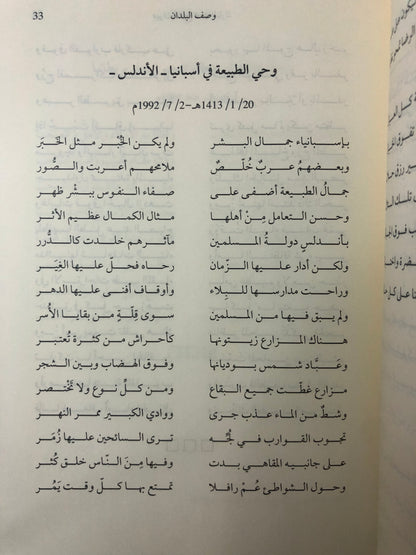 وصف البلدان 33
وحي الطبيعة في أسبانيا ـ الأندلس ـ
20/ 1/ 1413هـ ـ 2/ 7/ 1992م
بـإسبـانيـاء جمـال البشـر ولم يكن الخُبْر مثل الخَبَر
وبعضهـمُ عـربٌ خُلَّـصٌ ملامحهم أعربت والصُّور
جمالُ الطبيعة أضفى على صفاء النفوس ببِشْر ظهر
وحسن التعامل مِنْ أهلها مثال الكمال عظيم الأثر
بأندلسٍ دولةُ المسلمين مآثرهم خلدت كالدُّرر
ولكن أدار عليها الزّمان رحاه فحلّ عليها الغِيَر
وراحت مدارسها للبِلاء وأوقاف أفنى عليها الدهر
ولم يبق فيها من المسلمين سوى قِلّةٍ من بقايا الأُسر
هناك المزارع زيتونها كأحراش من كثرة تُعتبر
وعَبَّاد شمس بوديانها وفوق الهضاب وبين الشجر
مزارع غطّت جميع البقاع ومن كلّ نوع ولا تختصر
وشطّ من الماء عذب جرى ووادي الكبير ممر النهر
تجوب القوارب في لُجّه ترى السائحين عليها زُمَر
على جانبيه المقاهي بدت وفيها مِنَ النّاس خلق كُثر
وحول الشواطئ عُمْ رافلا تمتع بها كلّ وقت يَمُر